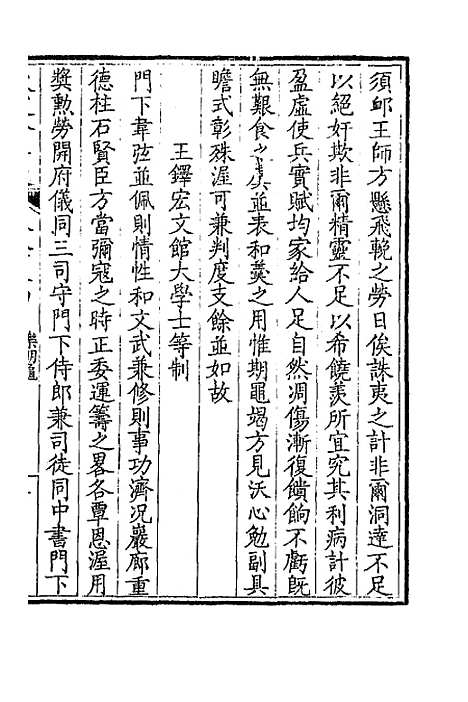 須卹王師方懸飛輓之勞日俟誅夷之計非爾洞達不足
以絕奸欺非爾精靈不足以希饒羨所宜究其利病計彼
盈虛使兵實賦均家給人足自然凋傷漸復饋餉不虧既
無艱食之並表和羹之用惟期黽竭方見沃心勉副具
瞻式彰殊渥可兼判度支餘並如故
王鐸宏文館大學士等制
門下韋弦並佩則情性和文武兼修則事功濟況巖廊重
德柱石賢臣方當彌寇之時正委運籌之畧各覃恩渥用
獎勲勞開府儀同三司守門下侍郎兼司徒同中書門下